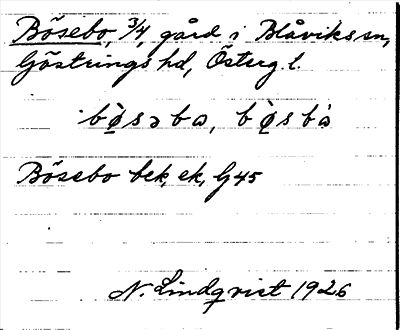 Bösebo, 3/4, gård i Blåviks sn,
Göstrings hd, Östergl.
bò̱səbo, bò̱sbò
Bösebo bek, ek, G45
N. Lindqvist 1926